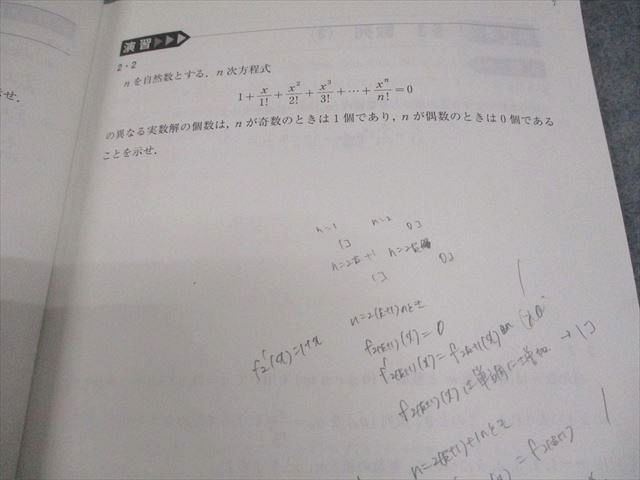 7
演習
2・2
nを自然数とする．n次方程式
1+x/1!+x²/2!+x³/3!+⋯+xⁿ/n!=0
の異なる実数解の個数は，nが奇数のときは1個であり，nが偶数のときは0個である
ことを示せ．
せ．
n=1 n=2
1コ 0コ
n=2k+1 n=2k
1コ 0コ
n=2(k+1)のとき
f₂'(x)=1+x
f₂₍ₖ₊₁₎(x)=0
f'₂₍ₖ₊₁₎(x)=f₂ₖ₊₁(x)
f₂₍ₖ₊₁₎(x)は単調に増加→1コ
n=2(k+1)+1のとき
(x)=f₂₍ₖ₊₁₎